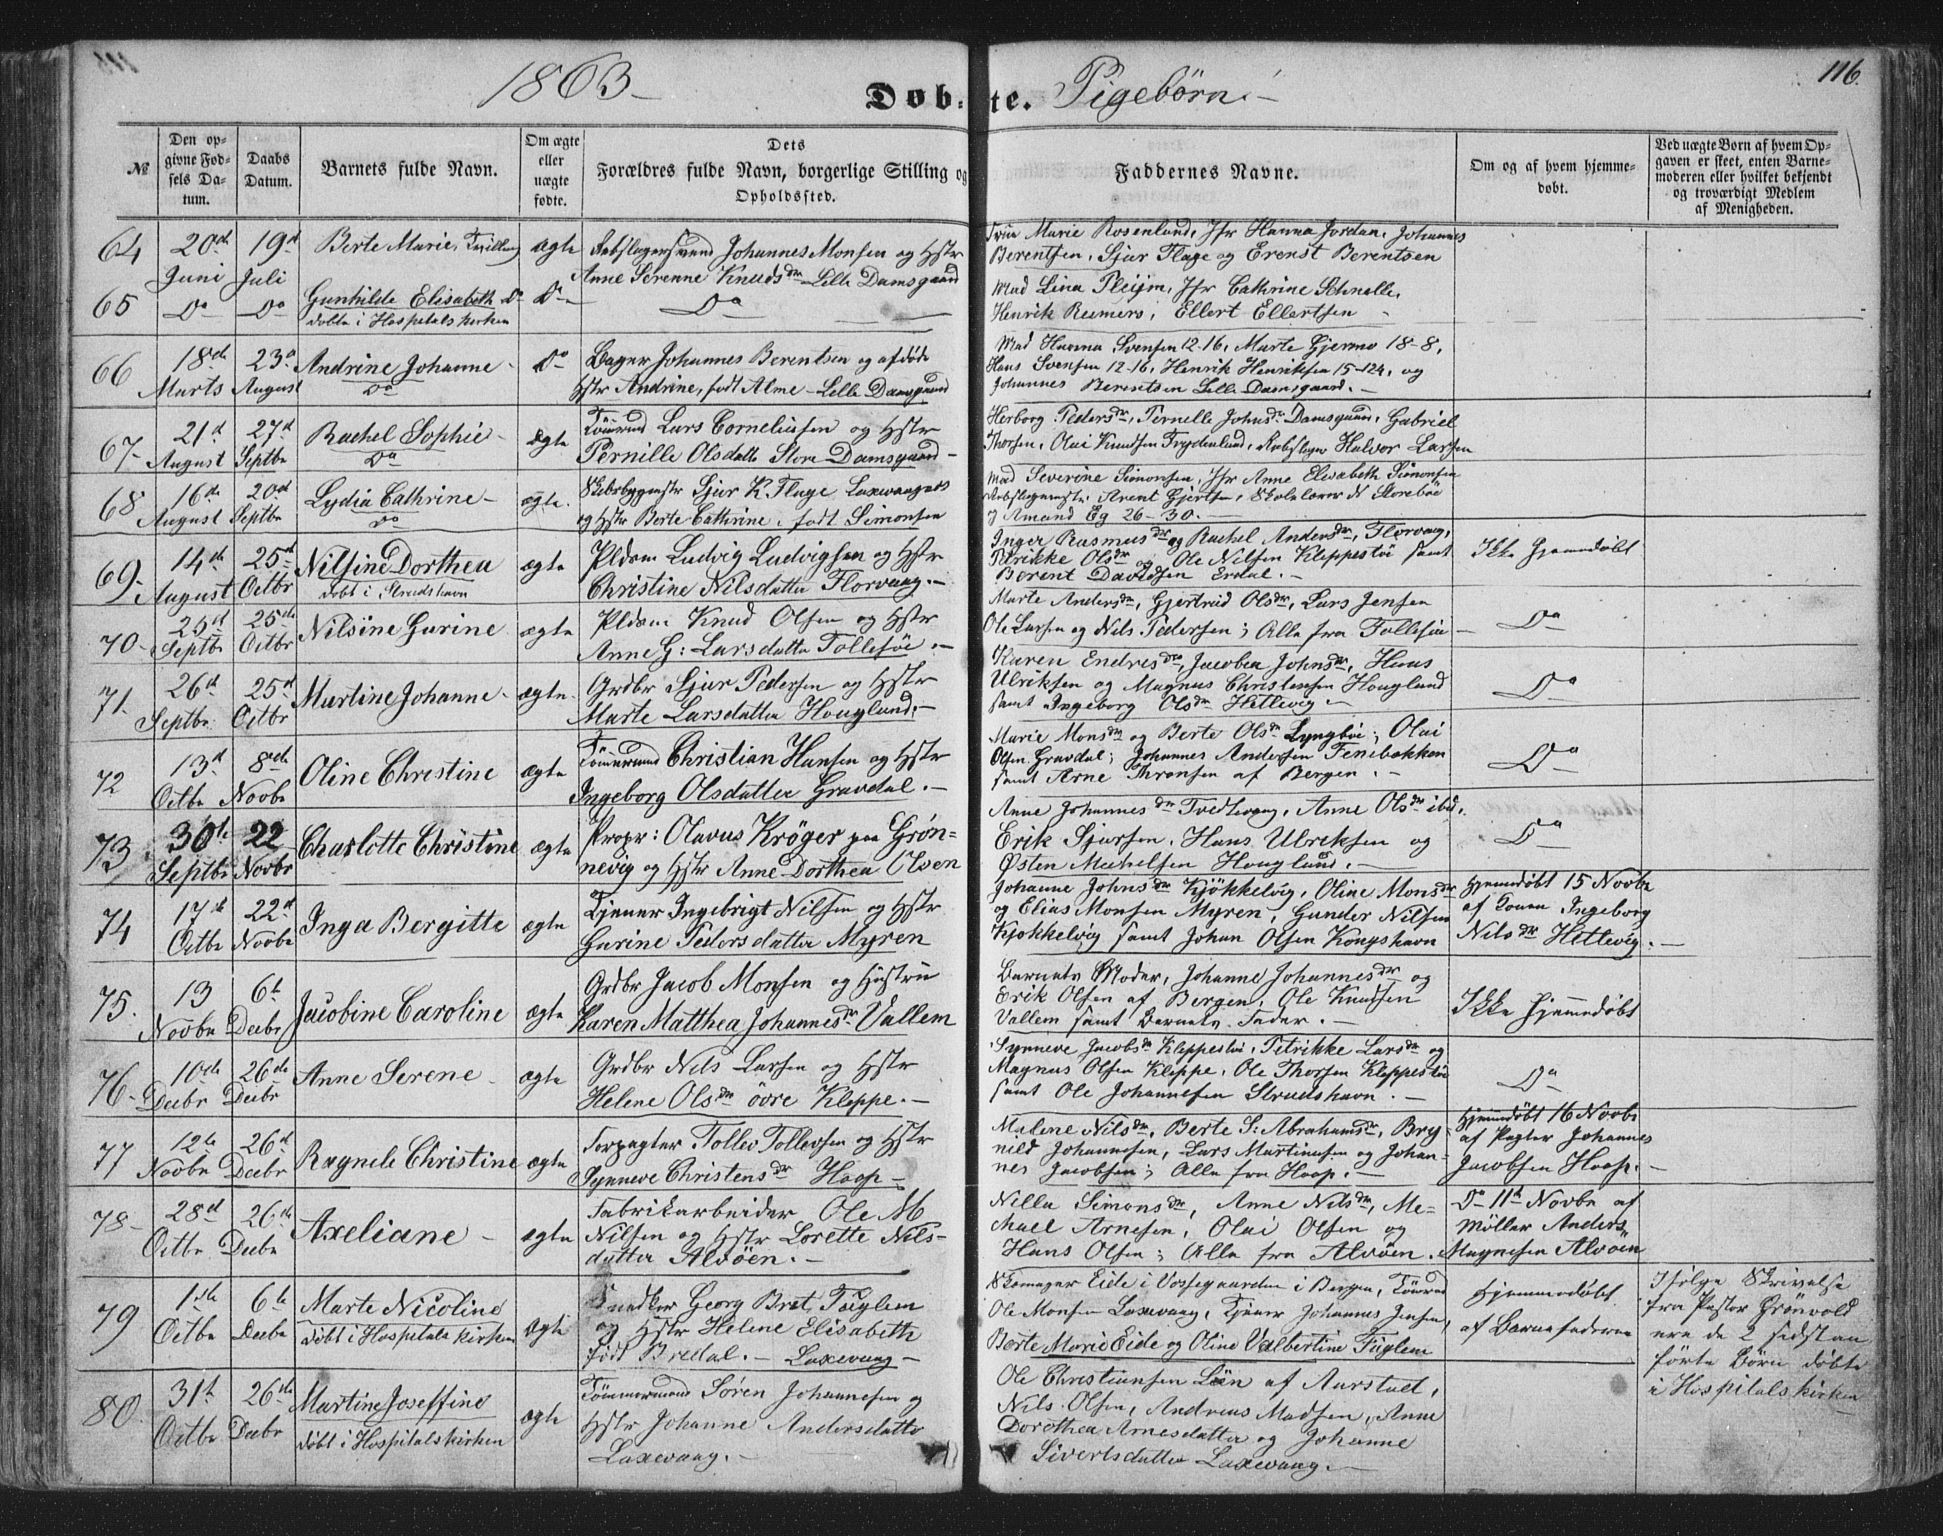 1863 –
Døbte. Pigebørn. –
116.
№
Den opgivne Fødsels Datum.
Daabs Datum.
Barnets fulde Navn.
Om ægte eller uægte fødte.
Dets Forældres fulde Navn, borgerlige Stilling og Opholdssted.
Faddernes Navne.
Om og af hvem hjemmedøbt.
Ved uægte Børn af hvem Opgaven er skeet, enten Barnemoderen eller hvilket bekjendt og troværdigt Medlem af Menigheden.
64 20de Juni 19d Juli Berte Marie, Tvilling ægte
Johannes Monsen og Hstr
Anne Serenne Knudsdr Lille Damsgaard
Marie Rosenlund, Jfr Hanna Jordan, Johannes
Berentsen, Sjur Flage og Erenst Berentsen
65 Do Do Gunhilde Elisabeth Do Do Do
døbte i Hospitalskirken
Mad Lina Pleijm, Jfr Cathrine Schnelle,
Henrik Reimers, Ellert Ellertsen
66 18de Marts 23d August Andrine Johanne – Do
Do
Bager Johannes Berentsen og afdøde
Hstr Andrine, født Alme – Lille Damsgaard
Mad Hanna Svensen 12-16, Marte Gjermo 18-8,
Hans Svensen 12-16, Henrik Henriksen 15-124, og
Johannes Berentsen Lille Damsgaard. –
67 21d August 27d Septbr Rachel Sophie – ægte
Do
Tømrmd Lars Corneliussen og Hstr
Pernille Olsdatter Store Damsgaard –
Herborg Pedersdr, Pernille Johnsdr Damsgaard, Gabriel
Thorsen, Olai Knudsen Frydenlund, Rebslager Halvor Larsen
68 16de August 20d Septbr Lydia Cathrine – ægte.
Do
Skibsbygmstr Sjur K. Flage Laxevaagnæs
og Hstr Berte Cathrine, født Simonsen
Mad Severine Simonsen, Jfr Anne Elisabeth Simonsen
Rebslagermstr. Arent Gjertsen, Skolelærer N Storebøe
og Amand Eg 26-30. –
69 – 14de August 25d Octbr Nilsine Dorthea ægte
døbt i Strudshavn
Pldsm Ludvig Ludvigsen og Hstr
Christine Nilsdatter Florvaag. –
Inger Rasmusdr og Rachel Andersdr, Florvaag,
Olsdr og Ole Nilsen Kleppestø samt
Berent Davidsen Erdal. –
Ikke Hjemmedøbt
70 – 25d Septbr 25de Octbr Nilsine Gurine ægte
Pldsm Knud Olsen og Hstr
Anne G: Larsdatter Follesøe. –
Marte Andersdr, Gjertrud Olsdr, Lars Jensen
Ole Larsen og Nils Pedersen; Alle fra Follesøe –
Do
71. 26d Septbr 25d Octbr Martine Johanne – ægte
Grdbr Sjur Pedersen og Hstr
Marte Larsdatter Hougland. –
Karen Endresdr, Jacobea Johnsdr, Hans
Ulriksen og Magnus Christensen Hougland
samt Ingeborg Olsdr Hetlevig –
Do
72 13d Octbr 8de Novbr Oline Christine ægte
Tømrmd Christian Hansen og Hstr
Ingeborg Olsdatter Gravdal. –
Marie Monsdr og Berte Olsdr Lyngbøe, Olai
Olsen Gravdal, Johannes Andersen Fenebakken
samt Arne Thronsen af Bergen. –
Do
73 30te Septbr 22 Novbr Charlotte Christine ægte
Propr: Olavus Krøger paa Grøn-
nevig og Hstr Anne Dorthea Olsen
Anne Johannesdr Tvedtevaag, Anne Olsdr ibid,
Erik Sjursen, Hans Ulriksen og
Østen Michelsen Hougland. –
Do
74 17de Octbr 22d Novbr Inga Bergitte ægte
Tjener Ingebrigt Nilsen og Hstr
Gurine Pedersdatter Myren
Johanne Johnsdr Kjøkkelvig, Oline Monsdr
og Elias Monsen Myren, Gunder Nilsen
Kjøkkelvig samt Johan Olsen Kongshavn
Hjemmedøbt 15 Novbr
af Konen Ingeborg
Nilsdr Hetlevig. –
75. 13 Novbr 6te Decbr Jacobine Caroline ægte
Grdbr Jacob Monsen og Hustru
Karen Matthea Johannesdr Vallem
Barnets Moder, Johanne Johannesdr og
Erik Olsen af Bergen, Ole Knudsen
Vallem samt Barnets Fader. –
Ikke Hjemmedøbt
76. 10de Decbr 26de Decbr Anne Serene – ægte
Grdbr Nils Larsen og Hstr
Helene Olsdr øvre Kleppe. –
Synneve Jacobsdr Kleppestø, Petrikke Larsdr og
Magnus Olsen Kleppe, Ole Thorsen Kleppestø
samt Ole Johannesen Strudshavn. –
Do
77 12te Novbr 26d Decbr Ragnele Christine ægte
Forpagter Tollev Tollevsen og Hstr
Synneve Christensdr Haap –
Malene Nilsdr, Berte S: Abrahamsdr, Bry-
nild Johannesen, Lars Martinusen og Johan-
nes Jacobsen; Alle fra Haap. –
Hjemmedøbt 16 Novbr
af Pagter Johannes
Jacobsen Haap. –
78 – 28d Octbr 26de Decbr Axeliane – ægte
Fabrikarbeider Ole M
Nilsen og Hstr Lorette Nils-
datter Alvøen. –
Nille Simonsdr, Anne Nilsdr, Mi-
chael Arnesen, Olai Olsen og
Hans Olsen; Alle fra Alvøen.
Do 11te Novbr af
Møller Anders
Magnesen Alvøen
79 1ste Octbr 6te Decbr Marte Nicoline ægte
døbt i Hospitalskirken
Snedker Georg Brat Fuglem
og Hstr Helene Elisabeth
født Bredal. – Laxevaag –
Skomager Eide i Vossegaarden i Bergen, Tømrmd
Ole Monsen Laxevaag, Tjener Johannes Jensen,
Berte Marie Eide og Oline Valbertine Fuglem
Hjemmedøbt
af Barnefaderen
Ifølge Skrivelse
fra Pastor Grønvold
ere de 2 sidstan
førte Børn døbte
i Hospitalskirken
80. 31te Octbr 26de Decbr Martine Joseffine ægte
døbt i Hospitalskirken
Tømmermand Søren Johannesen og
Hstr Johanne Andersdatter
Laxevaag. –
Ole Christiansen Lien af Aurstaet,
Nils Olsen, Andreas Madsen, Anne
Dorothea Arnesdatter og Johanne
Sivertsdatter Laxevaag. –